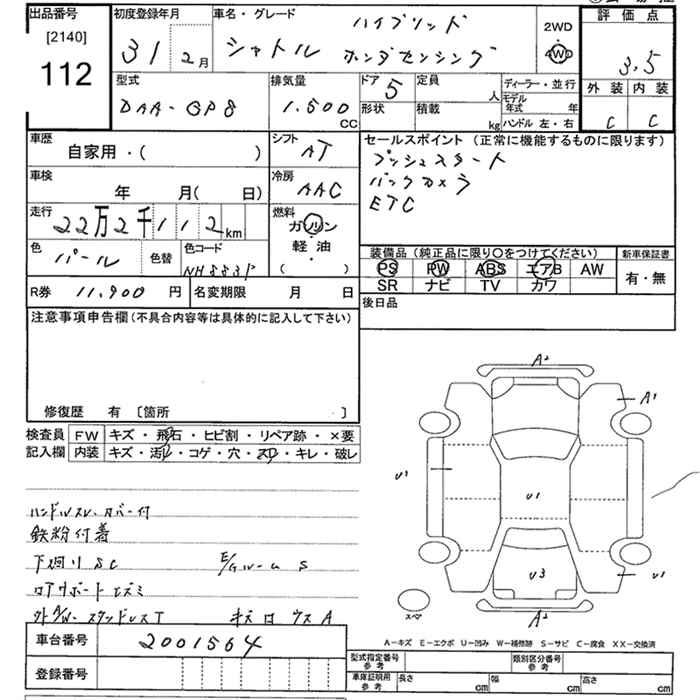 出品番号 初度登録年月 車名・グレード ハイブリッド 2WD 評価点
[2140] 112 31 2月 シャトル ホンダセンシング 4WD 3.5
外装 内装
C C
型式 排気量 ドア 5 定員 人 ディーラー・並行
DAA-GP8 1.500 CC 形状 積載 kg モデル年式 年
ハンドル 左・右
車歴 シフト セールスポイント (正常に機能するものに限ります)
自家用・( ) AT プッシュスタート
車検 年 月( 日) 冷房 AAC バックカメラ
ETC
走行 22万2千112km 燃料 ガソリン
軽油
( )
色 パール 色替 色コード NH883P
装備品 (純正品に限り○をつけてください) 新車保証書
PS PW ABS エアB AW 有・無
SR ナビ TV カワ
R券 11,900 円 名変期限 月 日 後日品
注意事項申告欄 (不具合内容等は具体的に記入して下さい)
修復歴 有 [箇所 ]
検査員 FW キズ・飛石・ヒビ割・リペア跡・×要
記入欄 内装 キズ・汚レ・コゲ・穴・スレ・キレ・破レ
A2
A1
U1 U1
U3 U1
A2
スペ
ハンドルスレ・カバー付
鉄粉付着
下廻りSC E/Gルーム S
ロアサポートヒズミ
外AW・スタッドレスT キズロウスA
A-キズ E-エクボ U-凹み W-補修跡 S-サビ C-腐食 XX-交換済
車台番号 2001564
登録番号
型式指定番号 参考 類別区分番号 参考
車庫証明用 参考 長さ cm 幅 cm 高さ cm